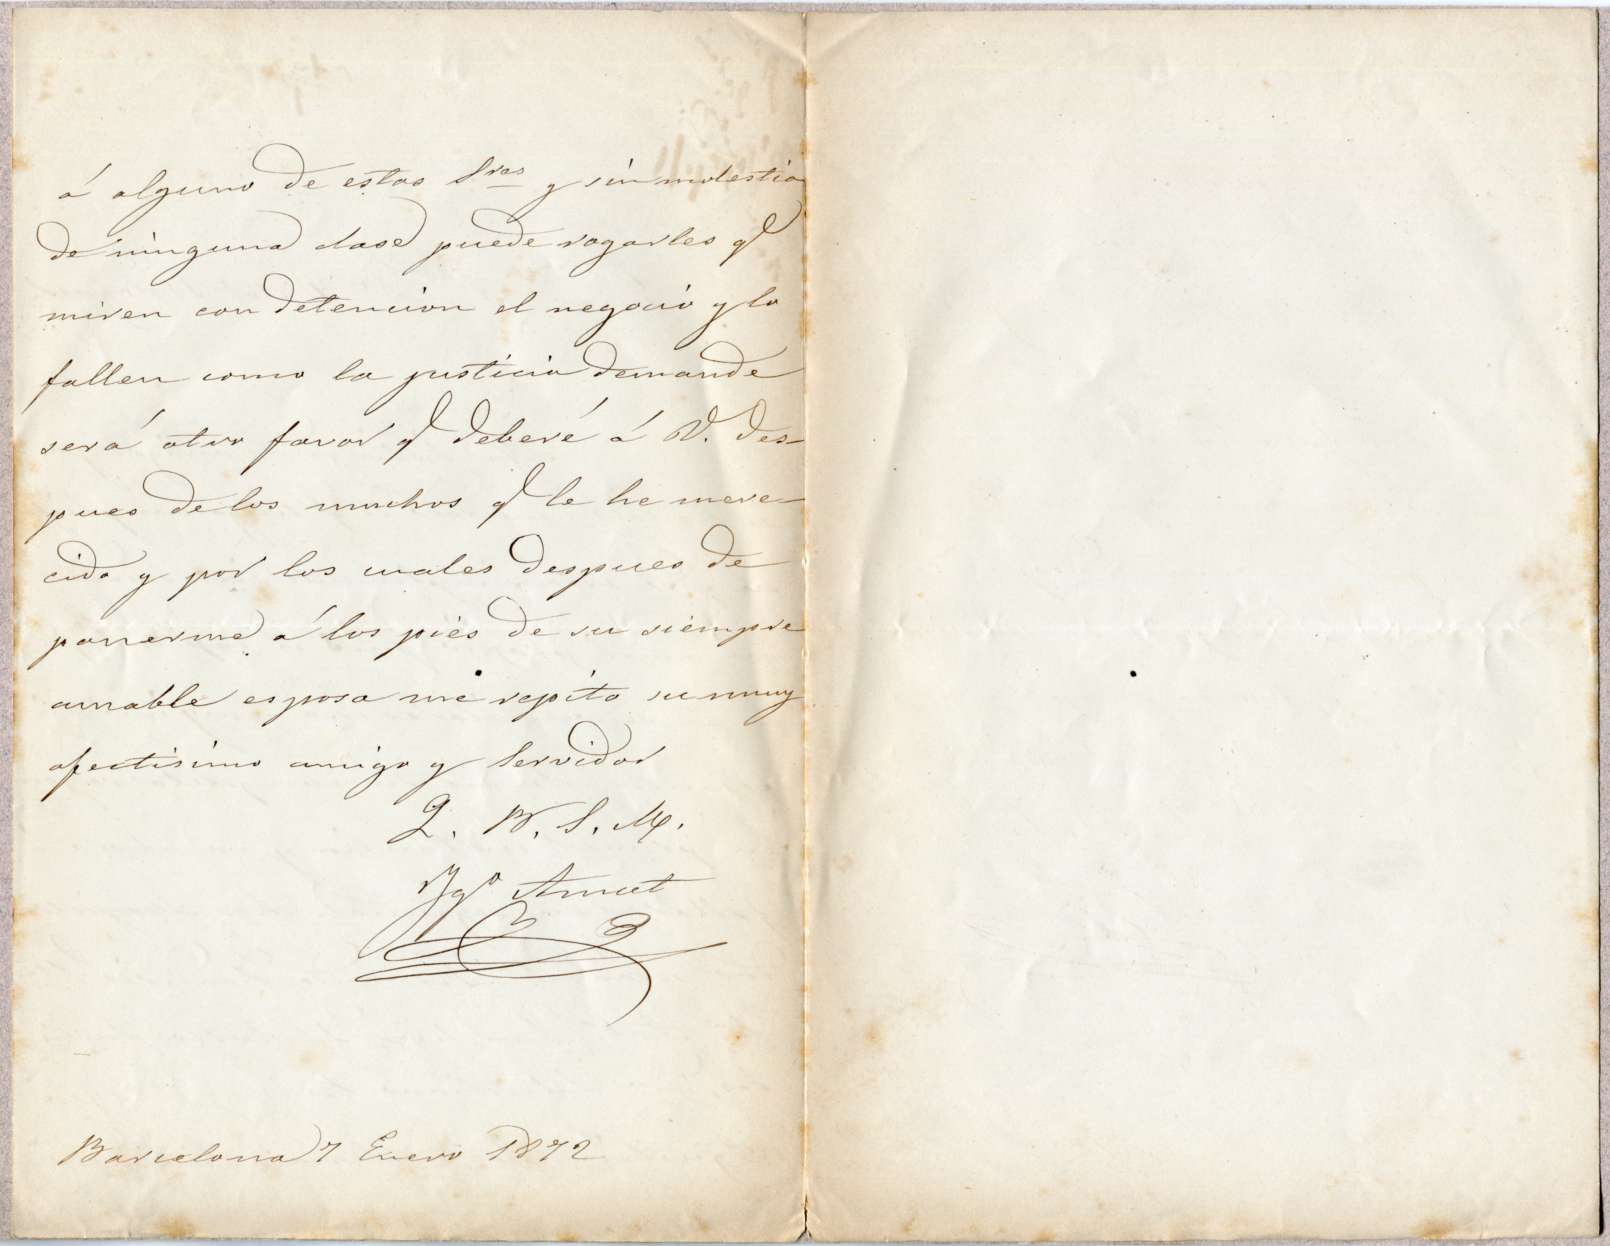 á alguno de estos Sres y sin molestia
de ninguna clase puede rogarles q
miren con detencion el negocio y lo
fallen como la justicia demande
será otro favor q deberé á V. des-
pues de los muchos q le he mere-
cido y por los cuales despues de
ponerme á los piés de su siempre
amable esposa me repito su muy
afectisimo amigo y servidor
Q. B. S. M.
Ygo Amat
Barcelona 7 Enero 1872